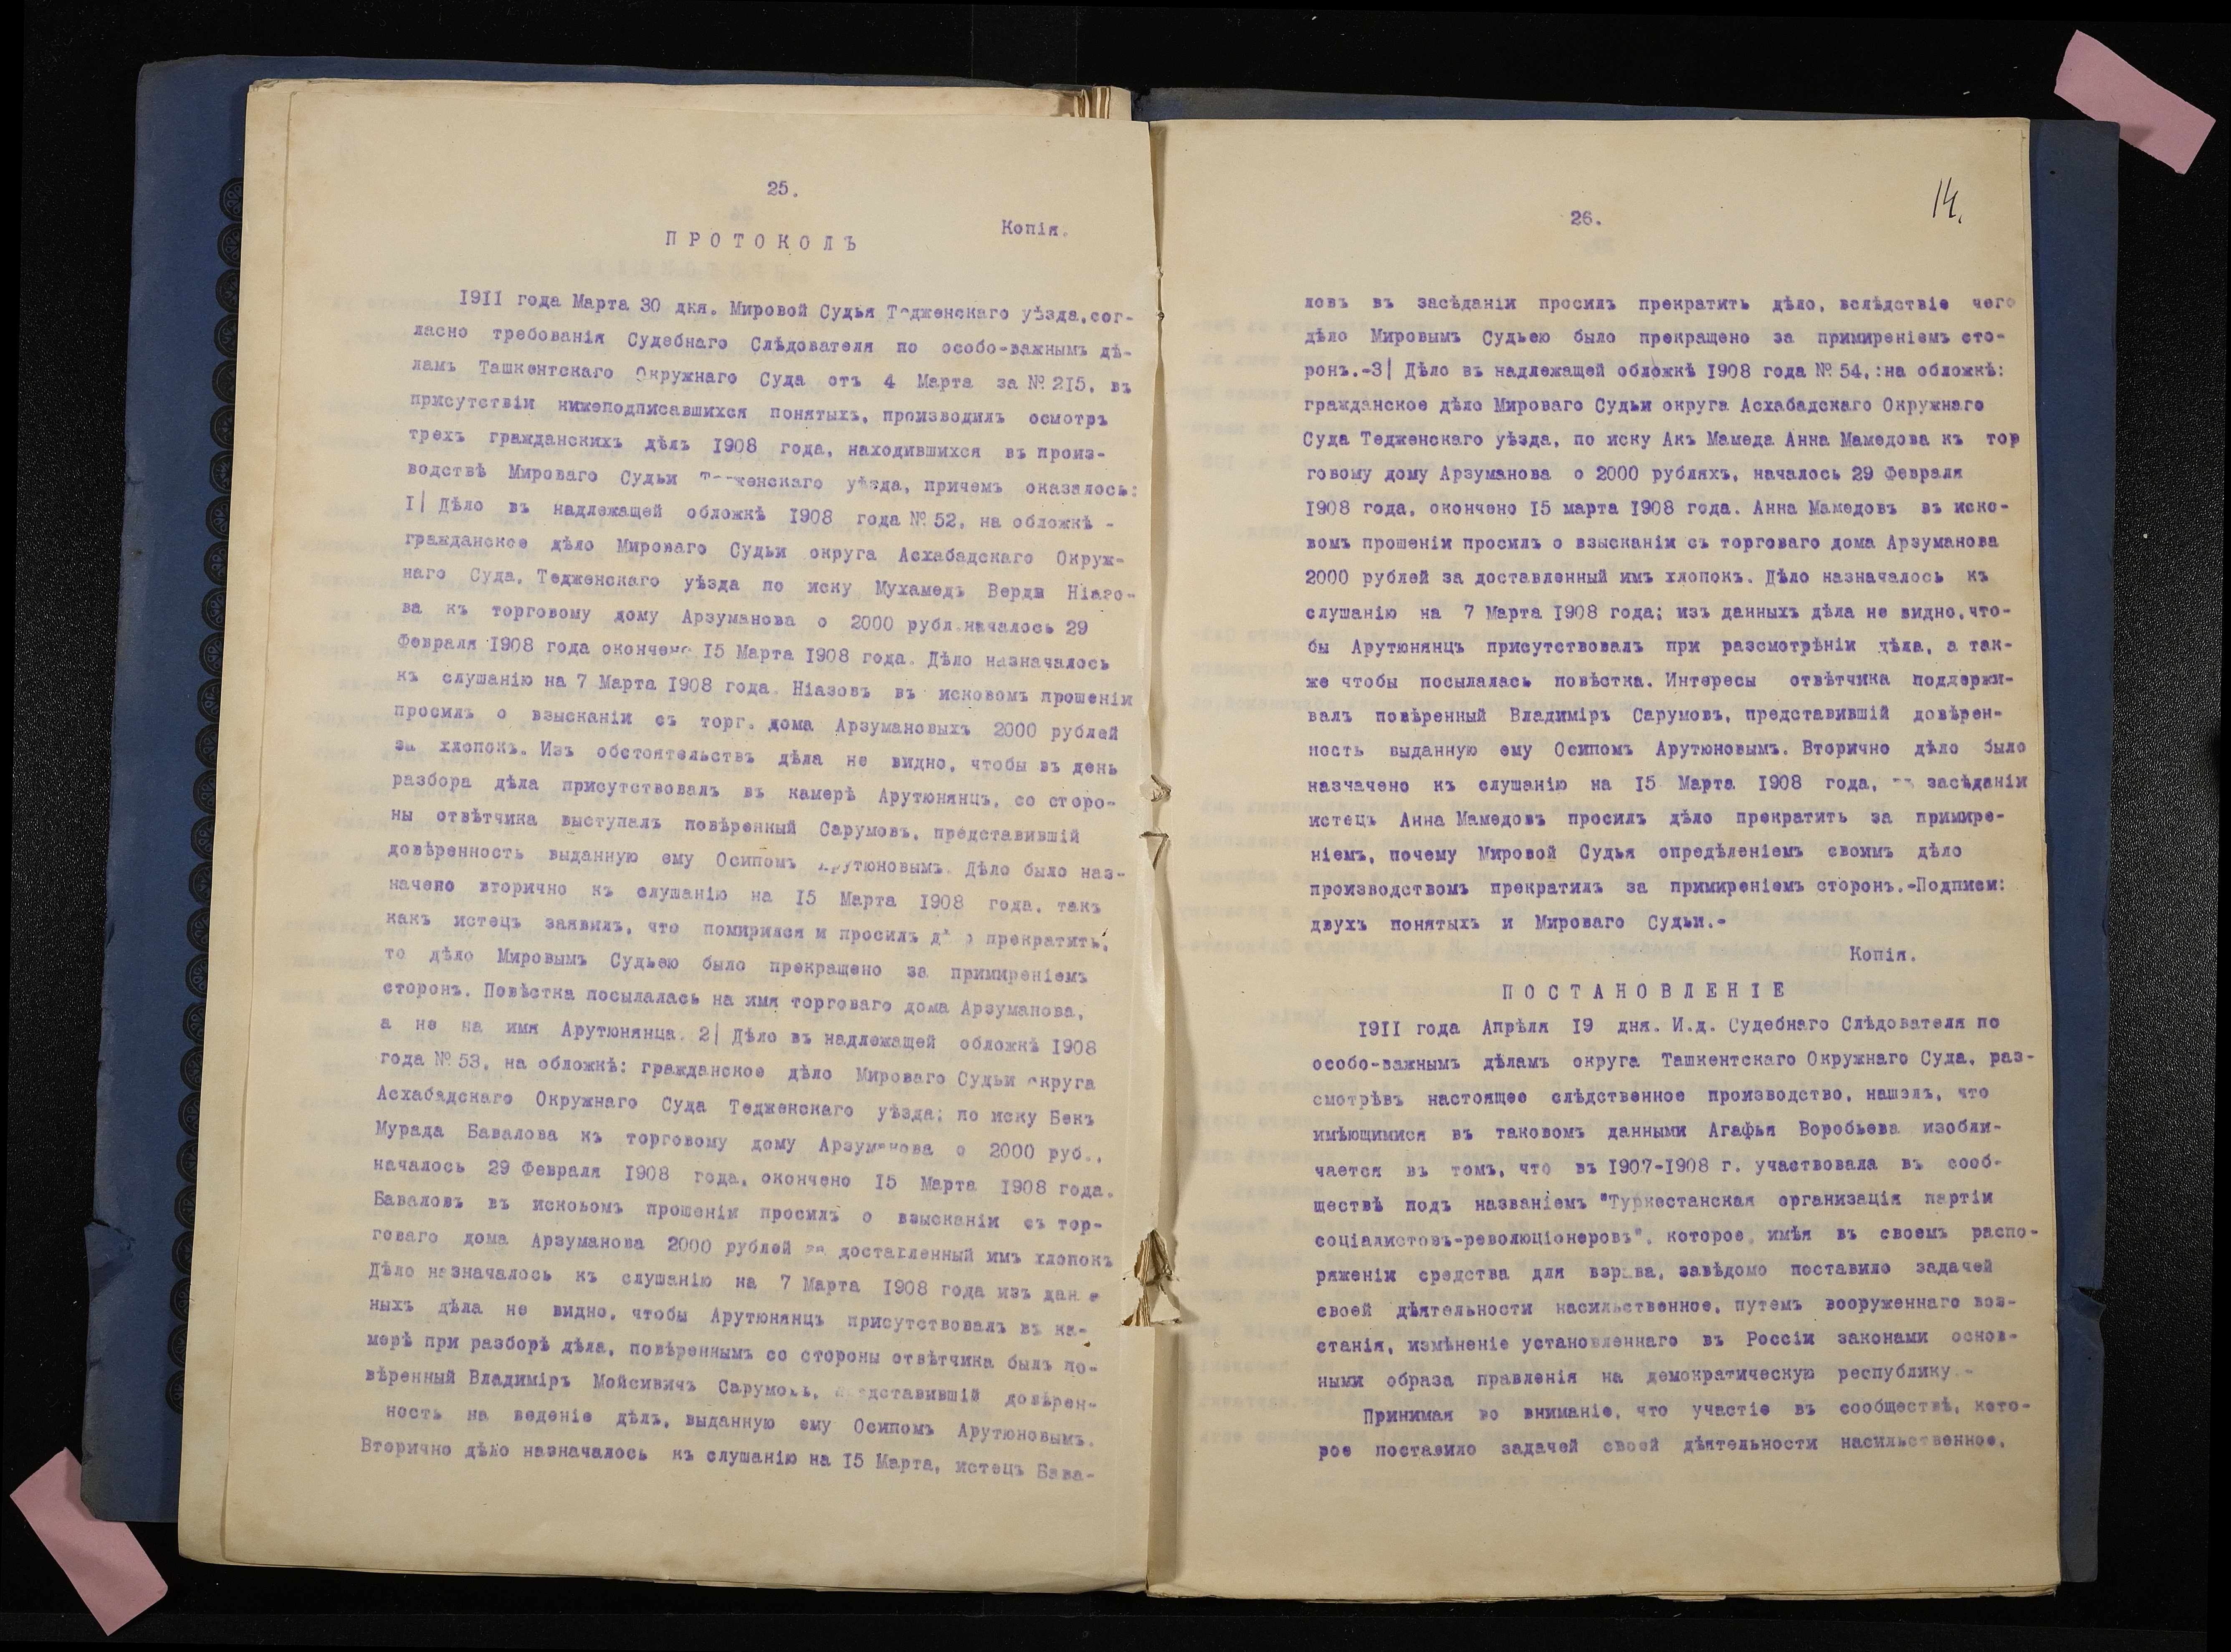 25.
Копія.
ПРОТОКОЛЪ
1911 года Марта 30 дня. Мировой Судья Тедженскаго уѣзда, сог-
ласно требованія Судебнаго Слѣдователя по особо-важнымъ дѣ-
ламъ Ташкентскаго Окружнаго Суда отъ 4 Марта за № 215, въ
присутствіи нижеподписавшихся понятыхъ, производилъ осмотръ
трехъ гражданскихъ дѣлъ 1908 года, находившихся въ произ-
водствѣ Мироваго Судьи Тедженскаго уѣзда, причемъ оказалось:
I| Дѣло въ надлежащей обложкѣ 1908 года № 52, на обложкѣ -
гражданское дѣло Мироваго Судьи округа Асхабадскаго Окруж-
наго Суда, Тедженскаго уѣзда по иску Мухамедъ Верды Ніазо-
ва къ торговому дому Арзуманова о 2000 рубл.началось 29
Февраля 1908 года окончено 15 Марта 1908 года. Дѣло назначалось
къ слушанію на 7 Марта 1908 года. Ніазовъ въ исковомъ прошеніи
просилъ о взысканіи съ торг. дома Арзумановыхъ 2000 рублей
за хлопокъ. Изъ обстоятельствъ дѣла не видно, чтобы въ день
разбора дѣла присутствовалъ въ камерѣ Арутюнянцъ, со сторо-
ны отвѣтчика выступалъ повѣренный Сарумовъ, представившій
довѣренность выданную ему Осипомъ Арутюновымъ. Дѣло было наз-
начено вторично къ слушанію на 15 Марта 1908 года, такъ
какъ истецъ заявилъ, что помирился и просилъ дѣло прекратить,
то дѣло Мировымъ Судьею было прекращено за примиреніемъ
сторонъ. Повѣстка посылалась на имя торговаго дома Арзуманова,
а не на имя Арутюнянца. 2| Дѣло въ надлежащей обложкѣ 1908
года № 53, на обложкѣ: гражданское дѣло Мироваго Судьи округа
Асхабадскаго Окружнаго Суда Тедженскаго уѣзда; по иску Бекъ
Мурада Бавалова къ торговому дому Арзуманова о 2000 руб.,
началось 29 Февраля 1908 года, окончено 15 Марта 1908 года.
Баваловъ въ исковомъ прошеніи просилъ о взысканіи съ тор-
говаго дома Арзуманова 2000 рублей за доставленный имъ хлопокъ
Дѣло назначалось къ слушанію на 7 Марта 1908 года изъ дан
ныхъ дѣла не видно, чтобы Арутюнянцъ присутствовалъ въ ка-
мерѣ при разборѣ дѣла, повѣреннымъ со стороны отвѣтчика былъ по-
вѣренный Владиміръ Мойсивичъ Сарумовъ, представившій довѣрен-
ность на веденіе дѣлъ, выданную ему Осипомъ Арутюновымъ.
Вторично дѣло назначалось къ слушанію на 15 Марта, истецъ Бава-
26.
14.
ловъ въ засѣданіи просилъ прекратить дѣло, вслѣдствіе чего
дѣло Мировымъ Судьею было прекращено за примиреніемъ сто-
ронъ.-3| Дѣло въ надлежащей обложкѣ 1908 года № 54,:на обложкѣ:
гражданское дѣло Мироваго Судьи округа Асхабадскаго Окружнаго
Суда Тедженскаго уѣзда, по иску Акъ Мамеда Анна Мамедова къ тор
говому дому Арзуманова о 2000 рубляхъ, началось 29 Февраля
1908 года, окончено 15 марта 1908 года. Анна Мамедовъ въ иско-
вомъ прошеніи просилъ о взысканіи съ торговаго дома Арзуманова
2000 рублей за доставленный имъ хлопокъ. Дѣло назначалось къ
слушанію на 7 Марта 1908 года; изъ данныхъ дѣла не видно,что-
бы Арутюнянцъ присутствовалъ при разсмотрѣніи дѣла, а так-
же чтобы посылалась повѣстка. Интересы отвѣтчика поддержи-
валъ повѣренный Владиміръ Сарумовъ, представившій довѣрен-
ность выданную ему Осипомъ Арутюновымъ. Вторично дѣло было
назначено къ слушанію на 15 Марта 1908 года, въ засѣданіи
истецъ Анна Мамедовъ просилъ дѣло прекратить за примире-
ніемъ, почему Мировой Судья опредѣленіемъ своимъ дѣло
производствомъ прекратилъ за примиреніемъ сторонъ.-Подписи:
двухъ понятыхъ и Мироваго Судьи.-
Копія.
ПОСТАНОВЛЕНІЕ
1911 года Апрѣля 19 дня. И.д. Судебнаго Слѣдователя по
особо-важнымъ дѣламъ округа Ташкентскаго Окружнаго Суда, раз-
смотрѣвъ настоящее слѣдственное производство, нашелъ, что
имѣющимися въ таковомъ данными Агафья Воробьева изобли-
чается въ томъ, что въ 1907-1908 г. участвовала въ сооб-
ществѣ подъ названіемъ "Туркестанская организація партіи
соціалистовъ-революціонеровъ", которое, имѣя въ своемъ распо-
ряженіи средства для взрыва, завѣдомо поставило задачей
своей дѣятельности насильственное, путемъ вооруженнаго воз-
станія, измѣненіе установленнаго въ Россіи законами основ-
ными образа правленія на демократическую республику.-
Принимая во вниманіе, что участіе въ сообществѣ, кото-
рое поставило задачей своей дѣятельности насильственное,